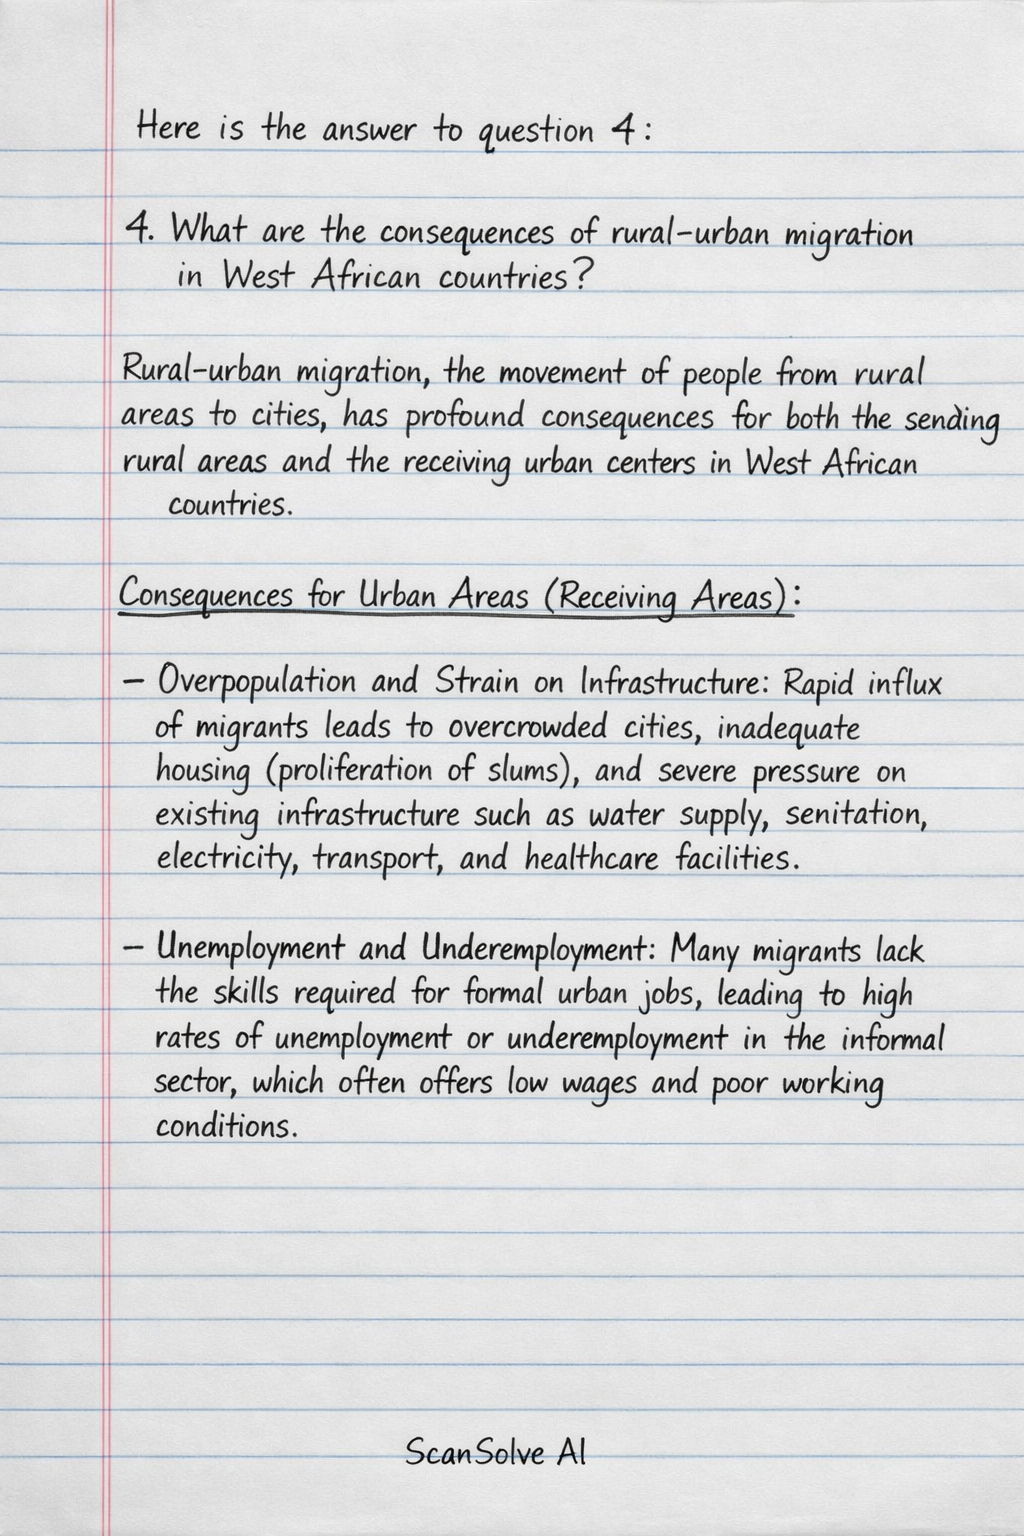 Here is the answer to question 4:
4. What are the consequences of rural-urban migration
in West African countries?
Rural-urban migration, the movement of people from rural
areas to cities, has profound consequences for both the sending
rural areas and the receiving urban centers in West African
countries.
Consequences for Urban Areas (Receiving Areas):
- Overpopulation and Strain on Infrastructure: Rapid influx
of migrants leads to overcrowded cities, inadequate
housing (proliferation of slums), and severe pressure on
existing infrastructure such as water supply, senitation,
electricity, transport, and healthcare facilities.
- Unemployment and Underemployment: Many migrants lack
the skills required for formal urban jobs, leading to high
rates of unemployment or underemployment in the informal
sector, which often offers low wages and poor working
conditions.
ScanSolve AI